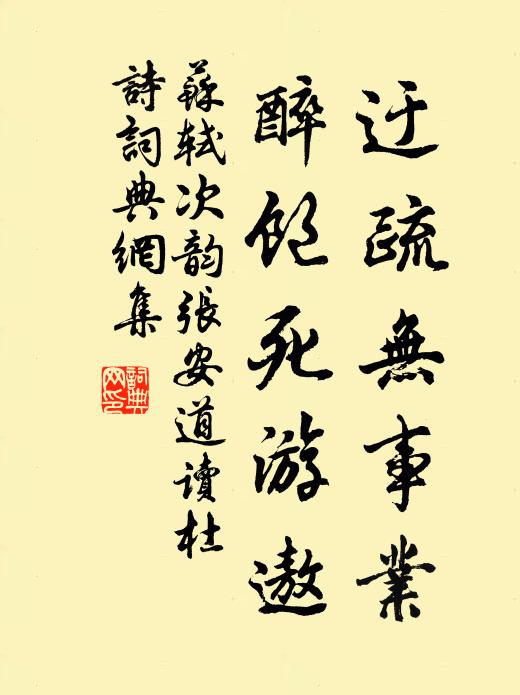 迂疏無事業
醉飽死游遨
蘇軾次韵張安道讀杜
詩詞典網集
詞典
网印